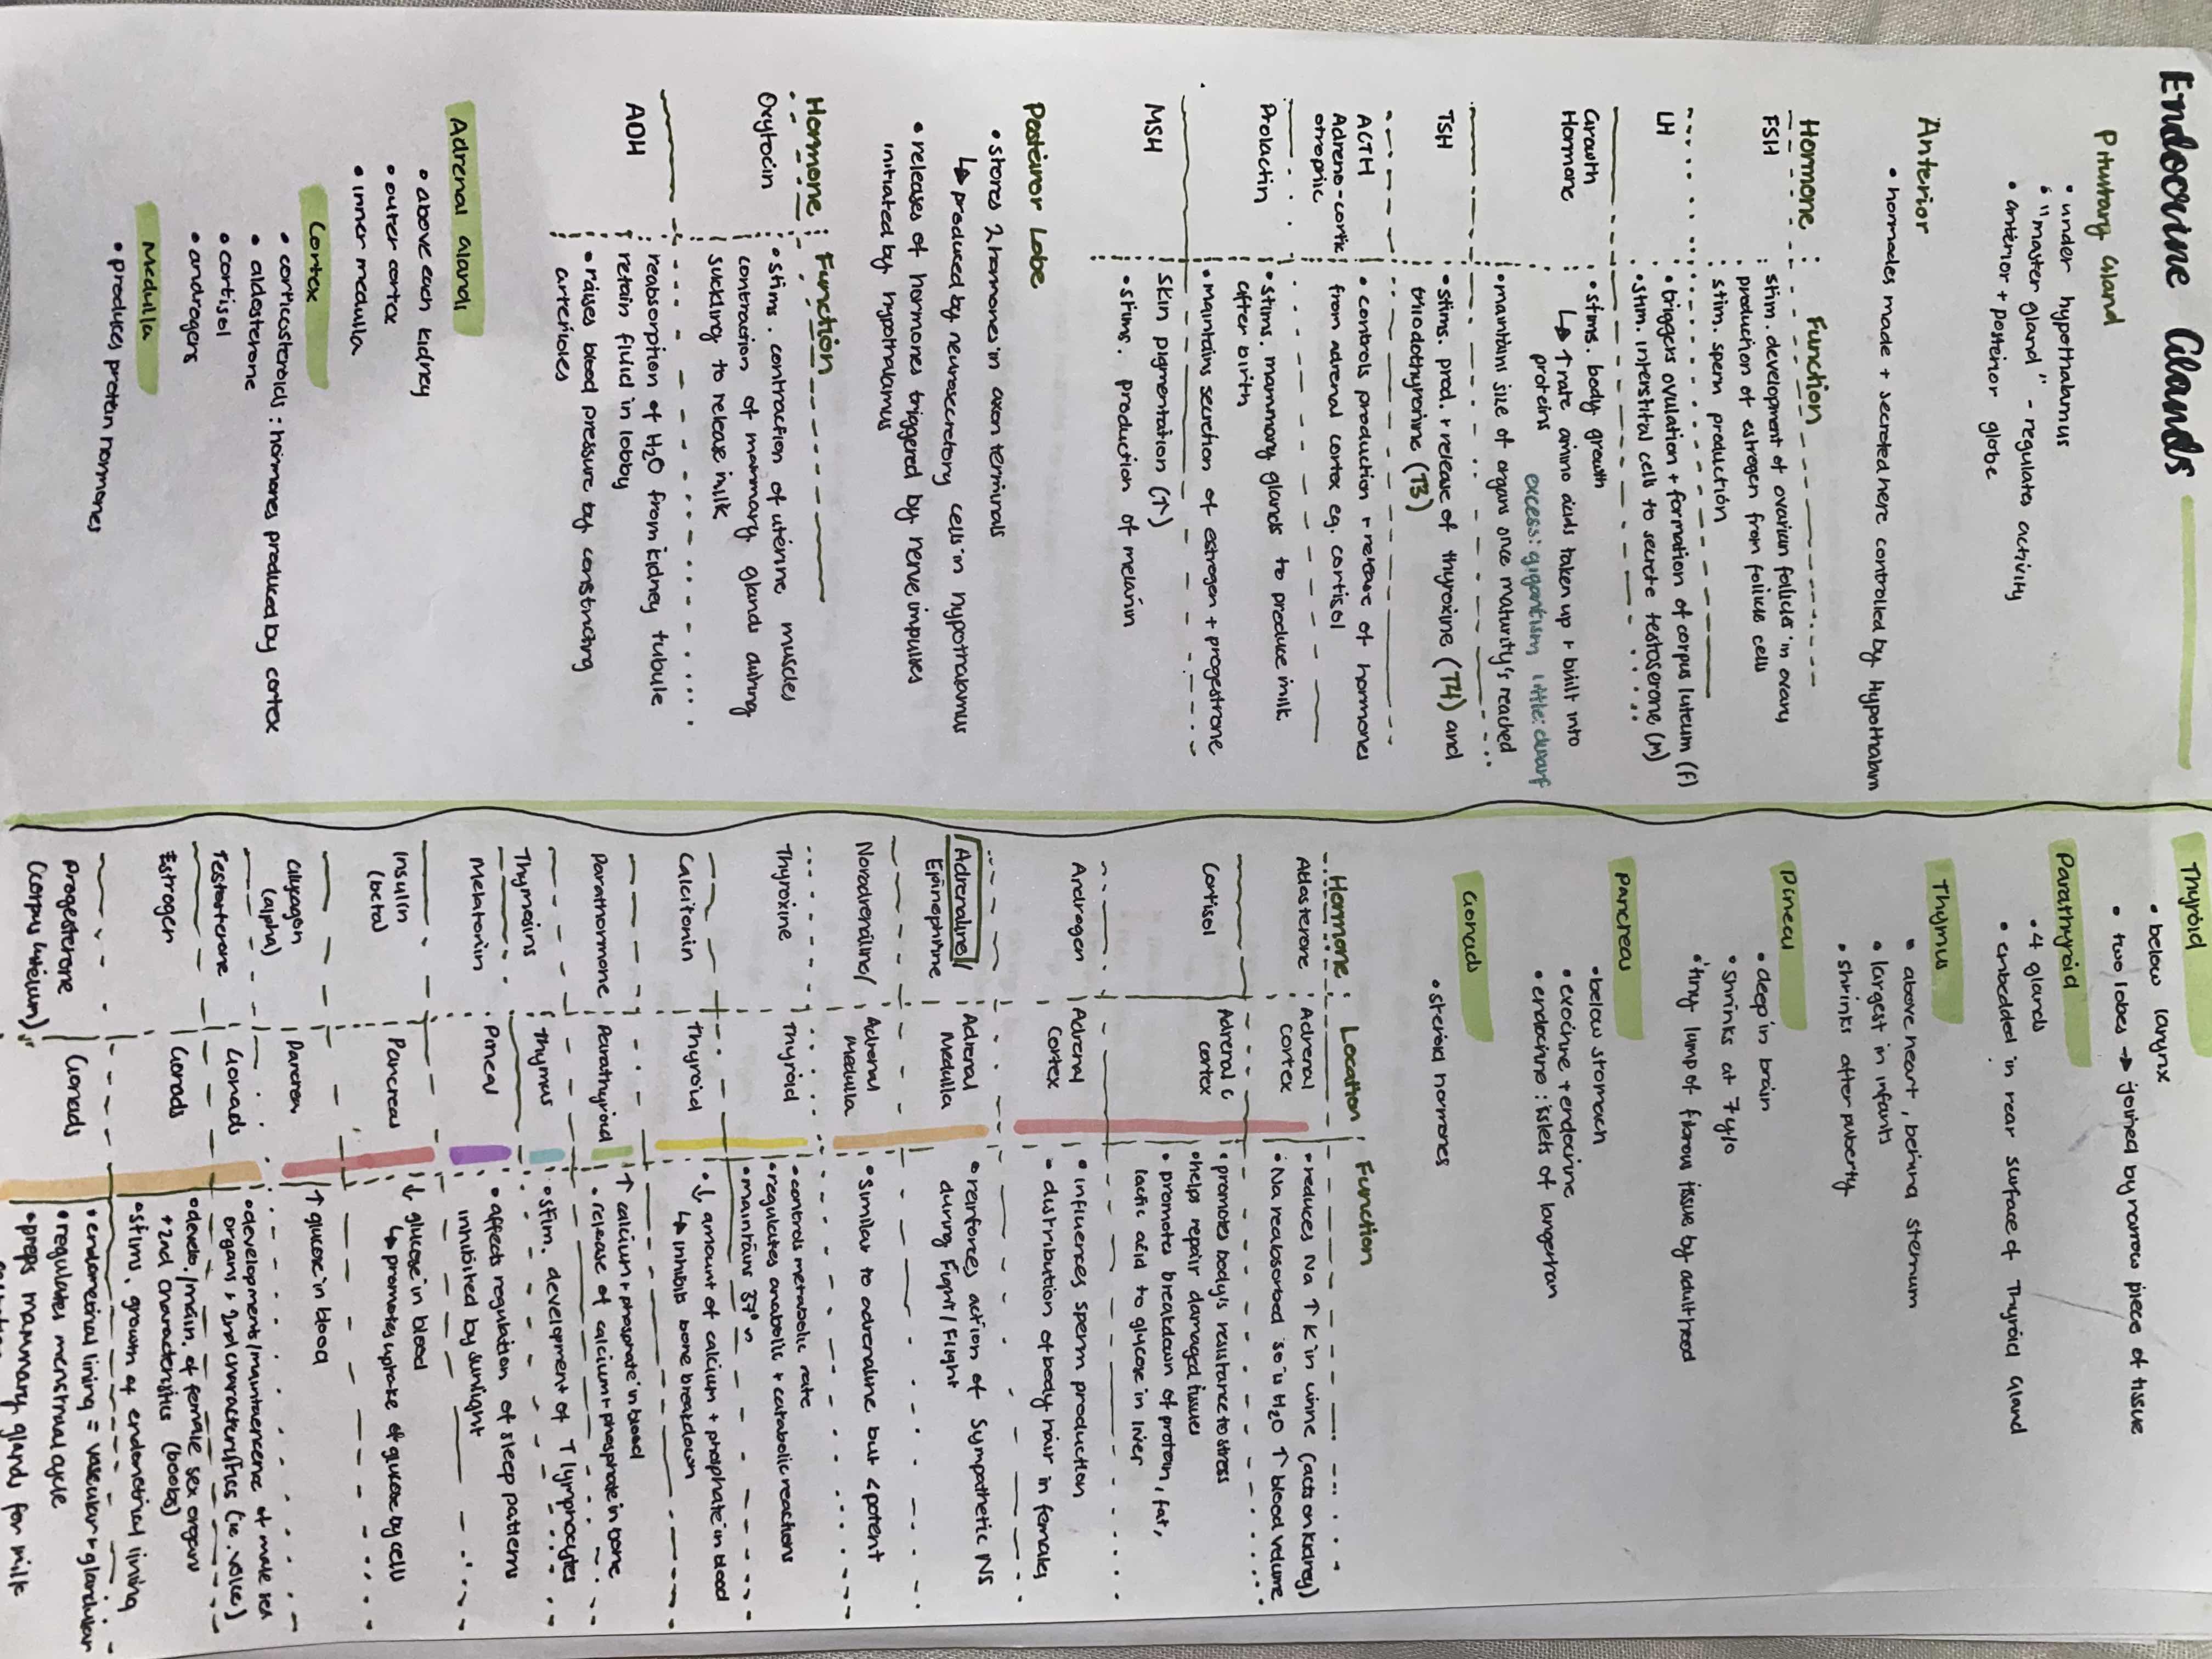 Endocrine Glands
Pituitary Gland
• under hypothalamus
• "master gland" - regulates activity
• anterior + posterior globe
Anterior
• homades made + secreted here controlled by Hypothalam
Hormone : Function
FSH : stim. development of ovarian follicles in ovary
production of estrogen from follicle cells
stim. sperm production
LH • triggers ovulation + formation of corpus luteum (F)
• stim. interstitial cell to secrete testoserone (M)
Growth Hormone • stims. body growth
↳ ↑ rate amino acids taken up + built into
proteins excess: gigantism little: dwarf
• maintains size of organs once maturity's reached
TSH • stims. prod. + release of thyroxine (T4) and
triiodothyronine (T3)
ACTH • controls production + release of hormones
Adreno-cortic otropic from adrenal cortex eg. cortisol
Prolactin • stims. mammary glands to produce milk
after birth
• maintains secretion of estrogen + progestrone
MSH skin pigmentation (↑)
• stims. production of melanin
Posterior Lobe
• stores 2 hormones in axon terminals
↳ produced by neurosecretory cells in hypothalamus
• releases of hormones triggered by nerve impulses
initiated by hypothalamus
Hormone : Function
Oxytocin • stims. contraction of uterine muscles
contraction of mammary glands during
suckling to release milk
ADH reabsorption of H2O from kidney tubule
retain fluid in lobby
• raises blood pressure by constricting
arterioles
Adrenal Glands
• above each kidney
• outer cortex
• inner medulla
Cortex
• corticosteroids : hormones produced by cortex
• aldosterone
• cortisol
• androgens
Medulla
• produces protein hormones
Thyroid
• below larynx
• two lobes → joined by narrow piece of tissue
Parathyroid
• 4 glands
• embedded in rear surface of Thyroid Gland
Thymus
• above heart, behind sternum
• largest in infants
• shrinks after puberty
Pineal
• deep in brain
• shrinks at 7 y/o
• tiny lump of fibrous tissue by adulthood
Pancreas
• below stomach
• exocrine + endocrine
• endocrine : islets of langerhan
Gonads
• steroid hormones
Hormone : Location : Function
Aldosterone Adrenal Cortex • reduces Na ↑ K in urine (acts on kidney)
• Na reabsorbed so is H2O ↑ blood volume
Cortisol Adrenal c cortex • promotes body's resistance to stress
• helps repair damaged tissues
• promotes breakdown of protein, fat,
lactic acid to glycose in liver
Androgen Adrenal Cortex • influences sperm production
• distribution of body hair in females
Adrenaline/ Epinephrine Adrenal Medulla • reinforces action of Sympathetic NS
during Fight / Flight
Noradrenaline/ Adrenal Medulla • similar to adrenaline but < potent
Thyroxine Thyroid • controls metabolic rate
• regulates anabolic + catabolic reactions
• maintains 37°
Calcitonin Thyroid • ↓ amount of calcium + phosphate in blood
↳ inhibits bone breakdown
Parathormone Parathyroid ↑ calcium + phosphate in blood
• release of calcium + phosphate in bone
Thymosins Thymus • stim. development of T lymphocytes
Melatonin Pineal • affects regulation of sleep patterns
inhibited by sunlight
Insulin (beta) Pancreas ↓ glucose in blood
↳ promotes uptake of glucose by cells
Glycagon (alpha) Pancreas ↑ glucose in blood
Testosterone Gonads • developments/maintaenence of male sex
organs + 2nd characteristics (ie. voice)
Estrogen Gonads • develo./main. of female sex organs
+ 2nd characteristics (boobs)
• stims. growth of endometrial lining
Progesterone (corpus luteum) Gonads • endometrial lining = vascular + glandular
• regulates menstrual cycle
• preps mammary glands for milk